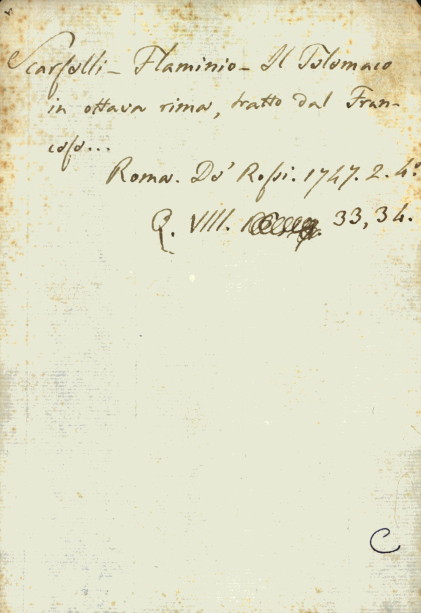 Scarselli - Flaminio - Il Telemaco
in ottava rima, tratto dal Fran-
cese...
Roma. De' Rossi. 1747. 2. 4º
Q. VIII. 33, 34.
C